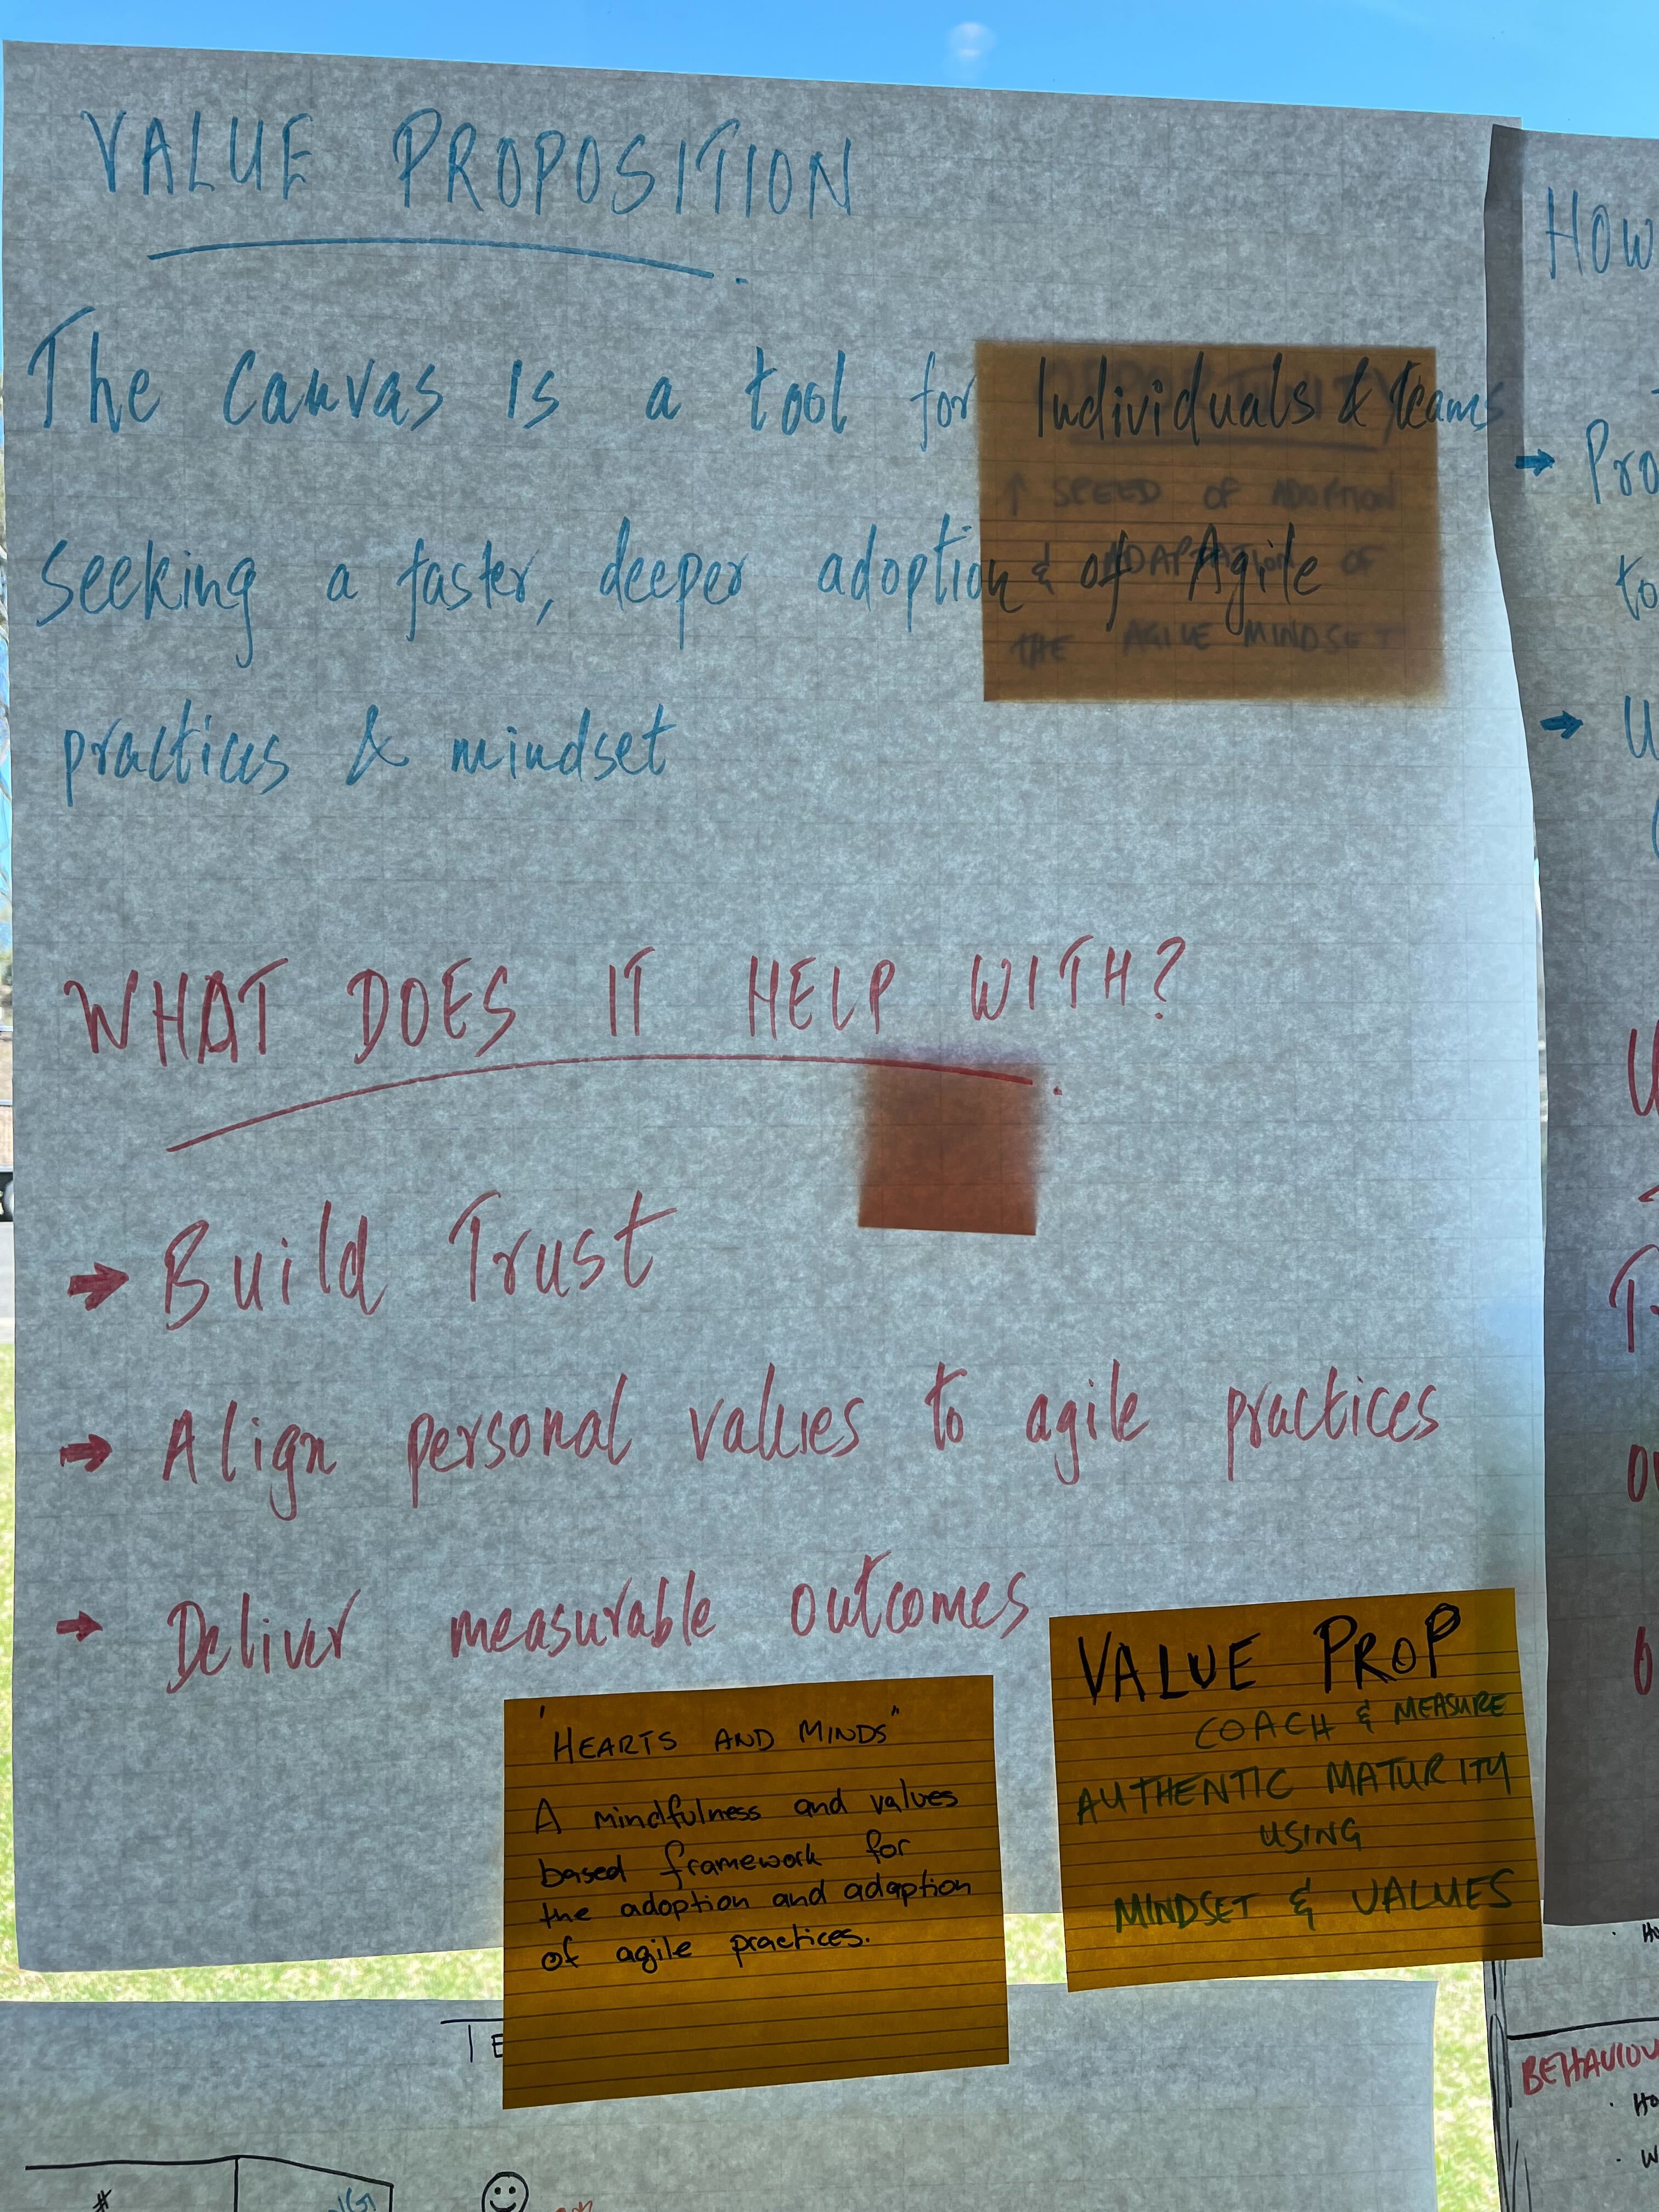 VALUE PROPOSITION
The canvas is a tool for Individuals & teams
seeking a faster, deeper adoption of Agile
practices & mindset
↑ SPEED OF ADOPTION
& ADAPTATION OF
THE AGILE MINDSET
WHAT DOES IT HELP WITH?
→ Build Trust
→ Align personal values to agile practices
→ Deliver measurable outcomes
"HEARTS AND MINDS"
A mindfulness and values
based framework for
the adoption and adaption
of agile practices.
VALUE PROP
COACH & MEASURE
AUTHENTIC MATURITY
USING
MINDSET & VALUES
HOW
→ Pro
to
BEHAVIOU
#